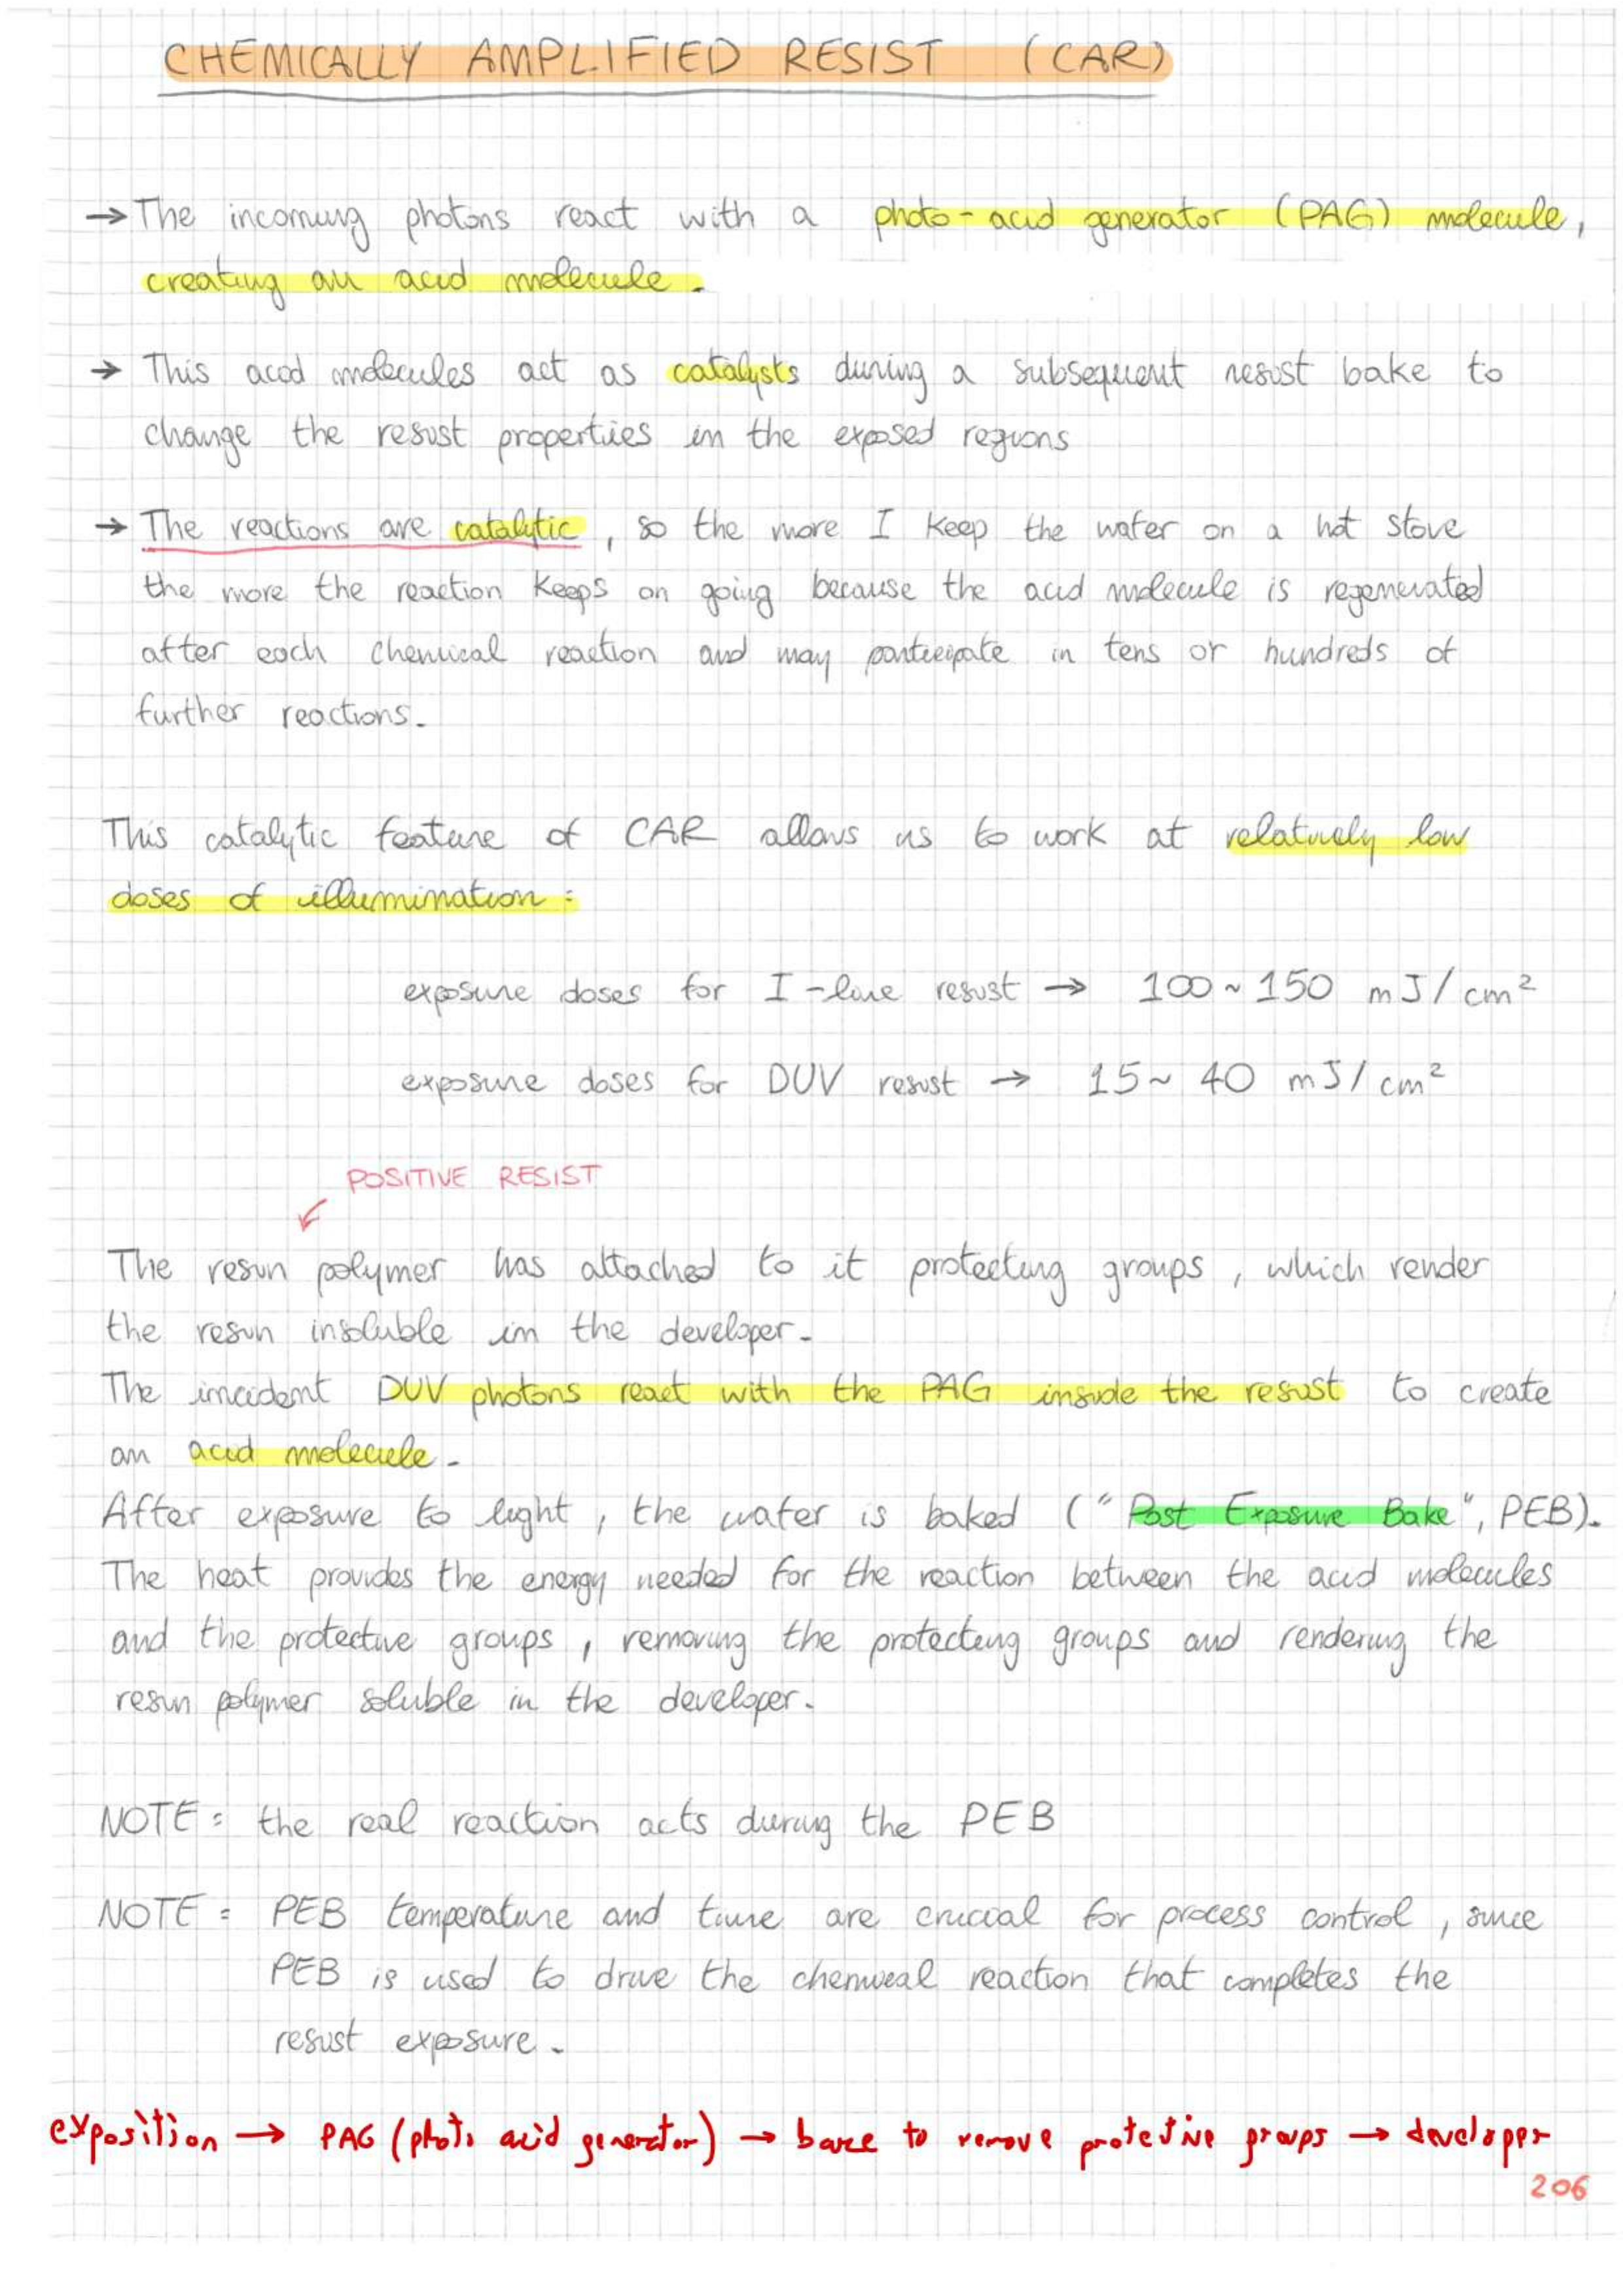 CHEMICALLY AMPLIFIED RESIST (CAR)
→ The incoming photons react with a photo-acid generator (PAG) molecule,
creating an acid molecule.
→ This acod molecules act as catalysts during a subsequent resist bake to
change the resist properties in the exposed regions
→ The reactions are catalytic, so the more I keep the water on a hot stove
the more the reaction keeps on going because the acid molecule is regenerated
after each chemical reaction and may participate in tens or hundreds of
further reactions.
This catalytic feature of CAR allows us to work at relatively low
doses of illumination:
exposure doses for I-line resist → 100~150 mJ/cm²
exposure doses for DUV resist → 15~40 mJ/cm²
POSITIVE RESIST
The resin polymer has attached to it protecting groups, which render
the resin insoluble in the developer.
The incident DUV photons react with the PAG inside the resist to create
an acid molecule.
After exposure to light, the water is baked ("Post Exposure Bake", PEB).
The heat provides the energy needed for the reaction between the acid molecules
and the protective groups, removing the protecting groups and rendering the
resin polymer soluble in the developer.
NOTE: the real reaction acts during the PEB
NOTE: PEB temperature and time are crucial for process control, since
PEB is used to drive the chemical reaction that completes the
resist exposure.
exposition → PAG (photo acid generator) → bake to remove protective groups → developer
206